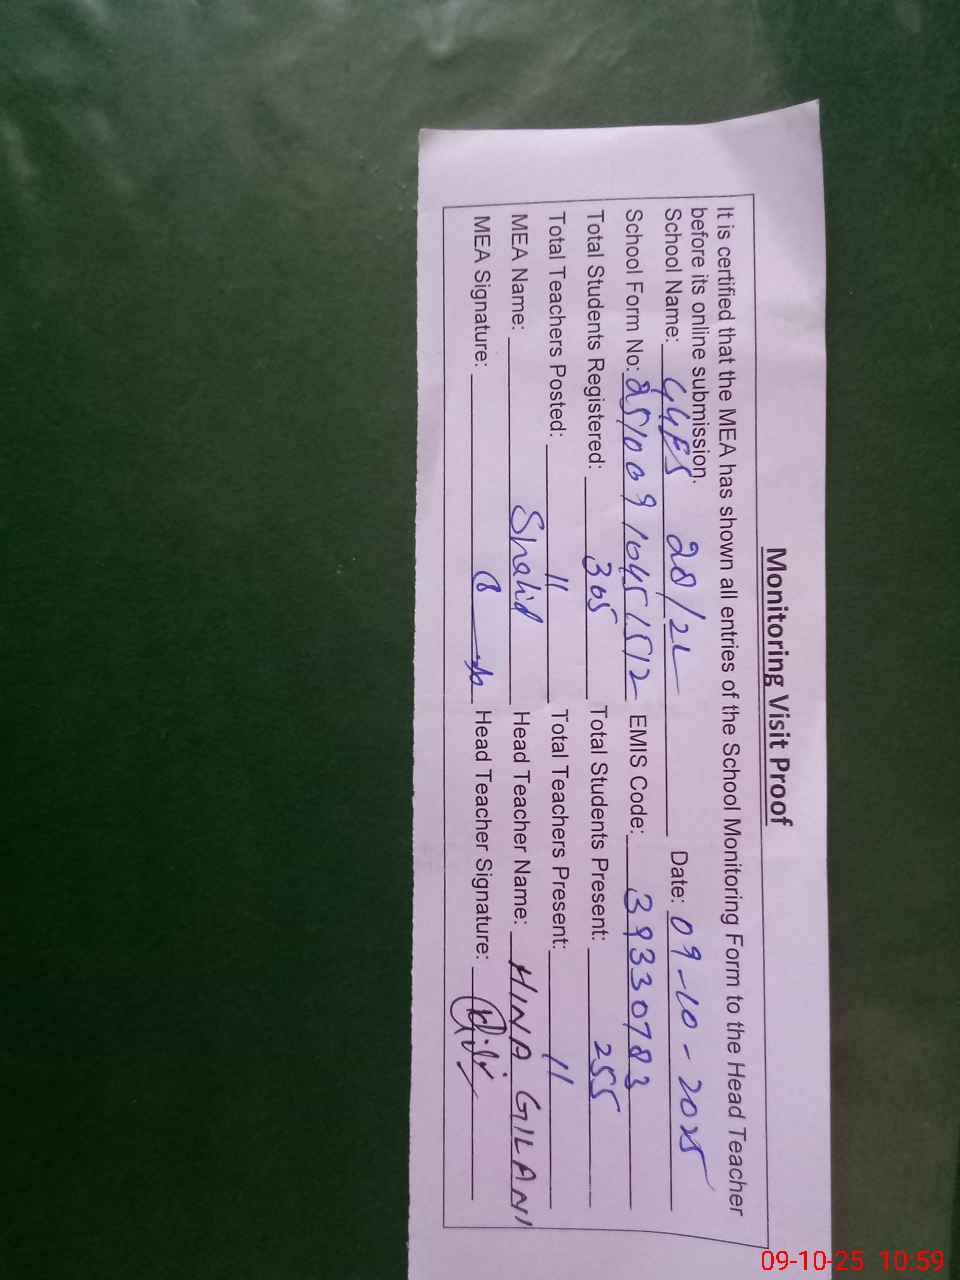 Monitoring Visit Proof
It is certified that the MEA has shown all entries of the School Monitoring Form to the Head Teacher
before its online submission.
School Name: GGES 28/2L Date: 09-10-2025
School Form No: 25100910451512 EMIS Code: 39330783
Total Students Registered: 305 Total Students Present: 255
Total Teachers Posted: 11 Total Teachers Present: 11
MEA Name: Shahid Head Teacher Name: HINA GILANI
MEA Signature: Head Teacher Signature:
09-10-25 10:59